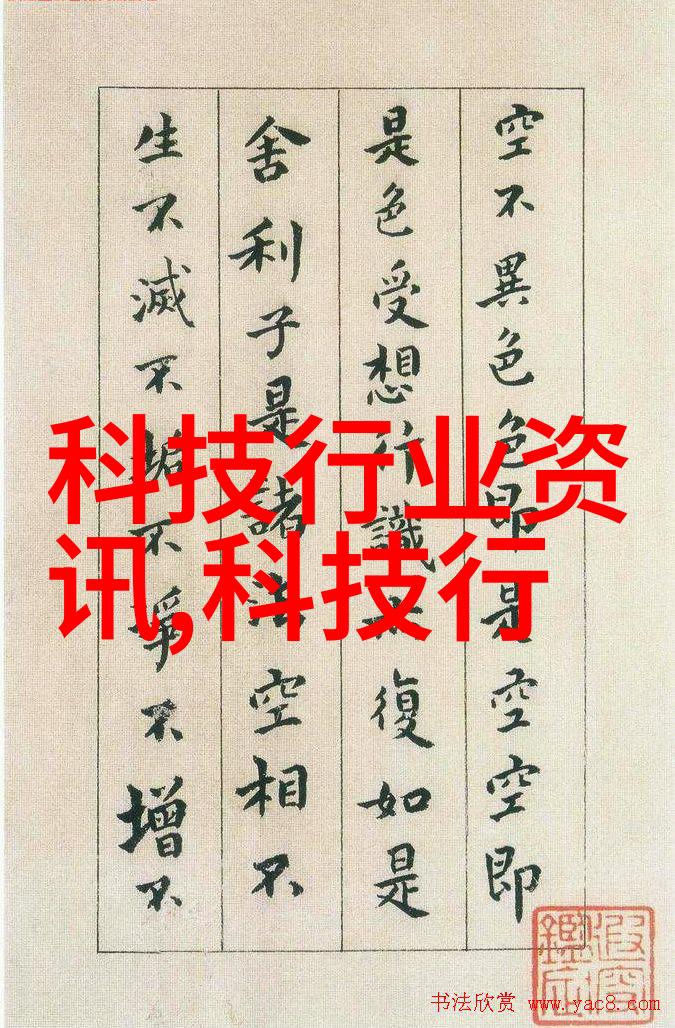 空不異色色即是空空即
是色受想行識亦復如是
舍利子是諸法空相不
生不滅不垢不淨不增不
科技行业资
讯,科技行
书法欣赏 www.yac8.com